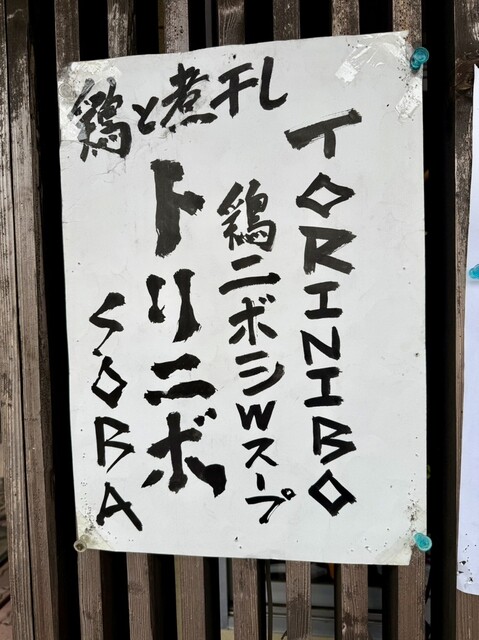 鶏と煮干し
TORINIBO
鶏ニボシWスープ
トリニボ
SOBA